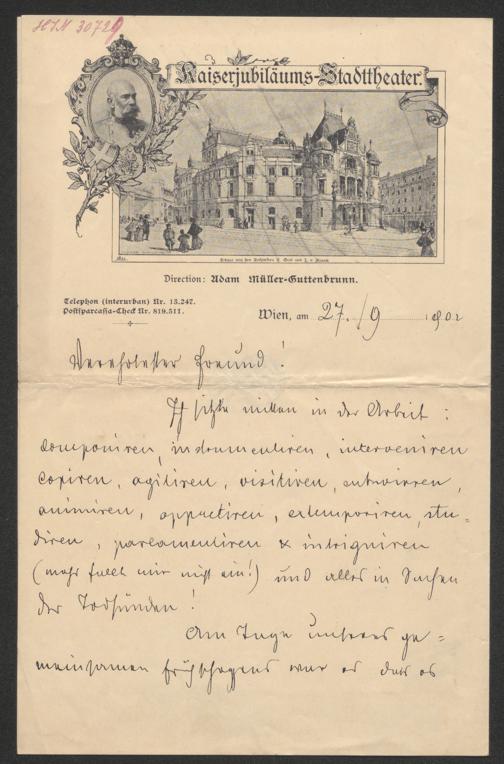 HIN 30729
Kaiserjubiläums-Stadttheater.
Direction: Adam Müller-Guttenbrunn.
Telephon (interurban) Nr. 13.247.
Postsparcassa-Check Nr. 819.511.
Wien, am 27./9 1902
Verehrtester Freund!
Ich sitze mitten in der Arbeit:
componiren, instrumentiren, interveniren
copiren, agitiren, visitiren, entwirren,
animiren, appretiren, extemporiren, stu-
diren, parlamentiren & intriguiren
(mehr fällt mir nicht ein!) und alles in Sachen
der Todsünden!
Am Tage unseres ge-
meinsamen war es das es